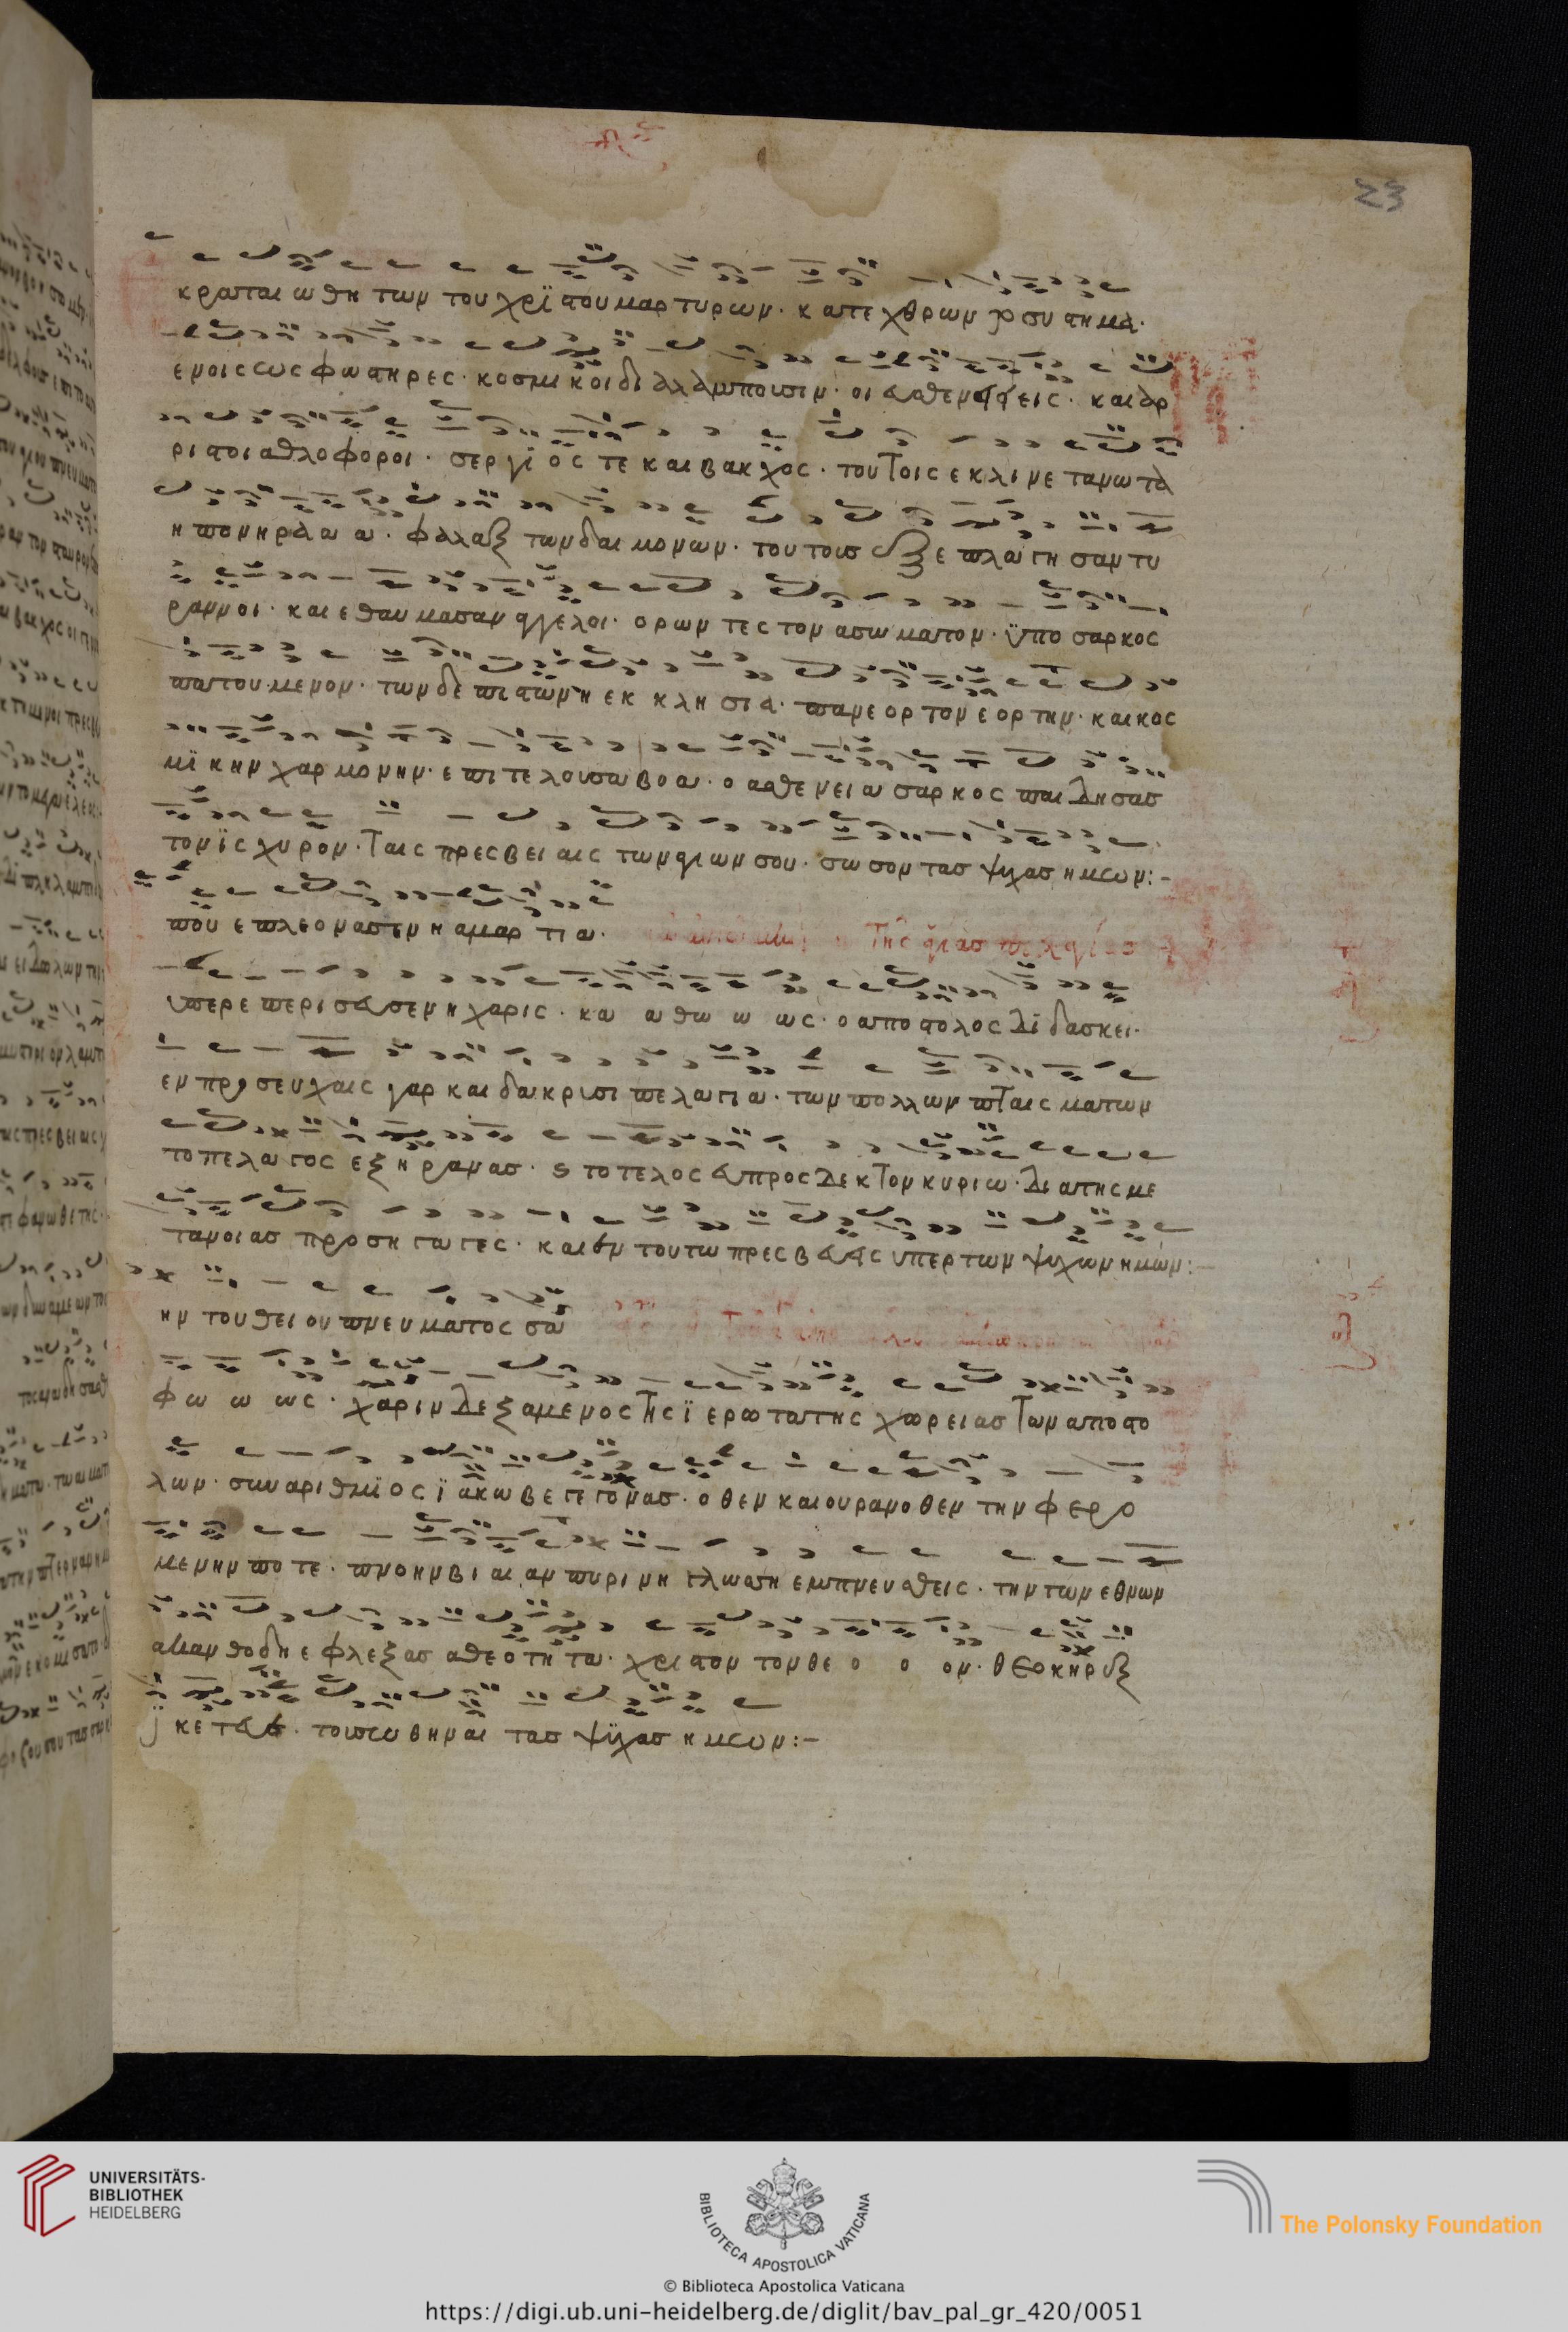 23
κραται ω θη των του χρϊ στου μαρ τυρων · κ ατε χθρων το συ στη μα ·
εν οις ως φωστηρες · κοσμι κοι δι αλαμπουσιν · οι ασθενησαντεις · και αρ
ρι στοι αθλοφοροι · σεργϊ ος τε και βακχος · τουτοις εκλινε τα νωτα
η πονηρα α α · φαλαξ των δαι μονων · τουτοις εξε πλαγη σαν τυ
ραννοι · και ε θαυ μασαν αγγελοι · ορων τες τον ασω ματον · ϋπο σαρκος
πατου μενον · των δε πιστων η εκ κλη σι α · πανε ορ τον ε ορ την · και κοσ
μϊ κην χαρ μο νην · ε πι τε λουσα βο α · ο ασθε νει α σαρ κος παι δη σασ
τον ϊς χυ ρον · ταις πρεσ βει αις των αγιων σου · σω σον τασ ψυχασ ημων :-
που ε πλεο νασεν η αμαρ τι α · Της αγιασ πελαγιασ
υπερε περι σευσεν η χαρις · κα α θω ω ως · ο αποστολος δϊ δασκει ·
εν προσευχαις γαρ και δακρυσι πελαγι α · των πολλων πταις ματων
το πελαγος εξ η ρανας · ς το τελος ευπροσδεκτον κυριω · δι α της με
τανοιασ προση γαγες · και εν τουτω πρεσβευεις υπερ των ψυχων ημων :-
ην του θει ου πνευματος σα
φω ω ως · χαριν δε ξαμενος της ϊ ερω τατης χωρειασ των αποστο
λων · συναριθμϊος ϊ ακωβε γεγονασ · ο θεν και ουρανοθεν την φερο
μενην πο τε · πνοην βι αι αν πυρι νη γλωσση εμπνευσθεις · την των εθνων
ακαν θοδη ε φλεξας αθεοτητα · χριστον τον θε ο ο ον · θεοκηρυξ
ϊ κε τευε · του σωθηναι τας ψϋχας ημων :-
UNIVERSITÄTS-
BIBLIOTHEK
HEIDELBERG
BIBLIOTECA APOSTOLICA VATICANA
The Polonsky Foundation
© Biblioteca Apostolica Vaticana
https://digi.ub.uni-heidelberg.de/diglit/bav_pal_gr_420/0051